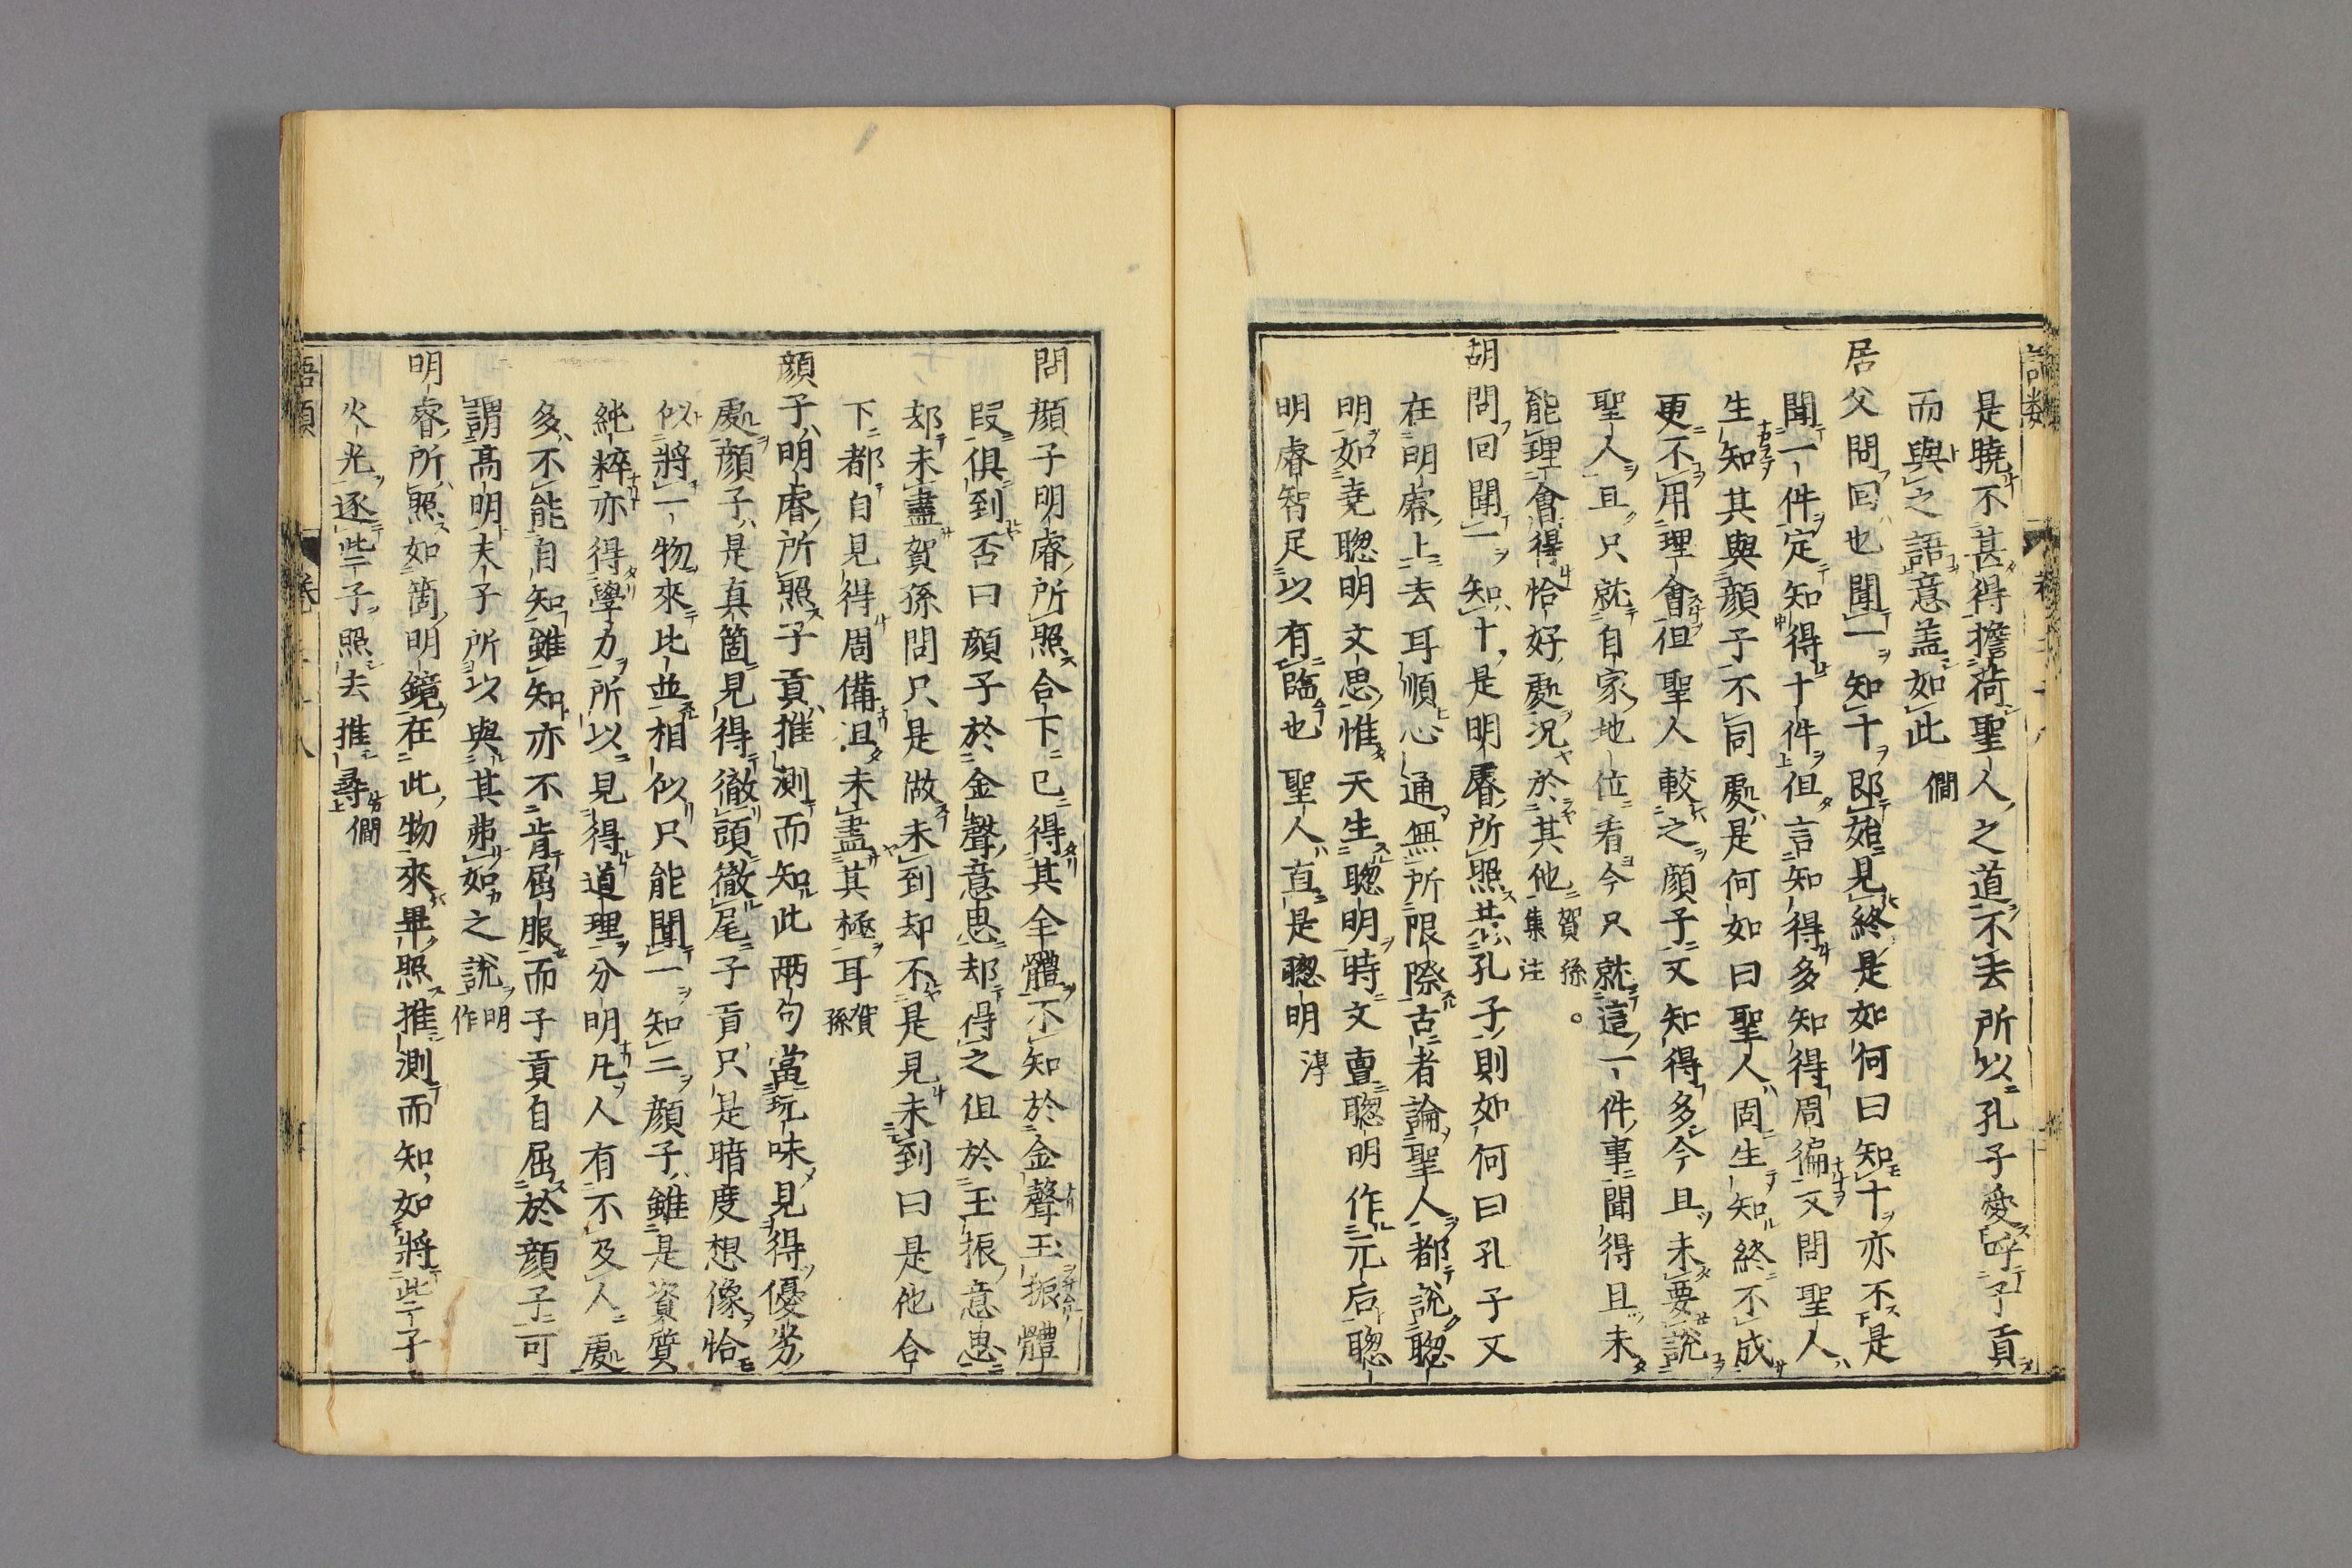 是曉不甚得擔荷聖人之道不去所以孔子愛呼子貢
而與之語意盖如此 僩
居父問回也聞一知十即始見終是如何曰知十亦不是
聞一件定知得十件但言知得多知得周徧又問聖人
生知其與顔子不同處是何如曰聖人固生知終不成
更不用理會但聖人較之顔子又知得多今且未要說
聖人且只就自家地位看今只就這一件事聞得且未
能理會得恰好處況於其他 賀孫 集注 。
胡問回聞一知十是明睿所照若孔子則如何曰孔子又
在明睿上去耳順心通無所限際古者論聖人都說聦
明如堯聦明文思惟天生聦明時文亶聦明作元后聦
明睿智足以有臨也聖人直是聦明 淳
問顔子明睿所照合下已得其全體不知於金聲玉振體
段俱到否曰顔子於金聲意思却得之但於玉振意思
却未盡賀孫問只是做未到却不是見未到曰是他合
下都自見得周備但未盡其極耳 賀孫
顔子明睿所照子貢推測而知此兩句當玩味見得優劣
處顔子是真箇見得徹頭徹尾子貢只是暗度想像恰
似將一物來比並相似只能聞一知二顔子雖是資質
純粹亦得學力所以見得道理分明凡人有不及人處
多不能自知雖知亦不肯屈服而子貢自屈於顔子可
謂高明夫子所以與其弗如之說 明作
明睿所照如箇明鏡在此物來畢照推測而知如將些子
火光逐些子照去推尋 僩